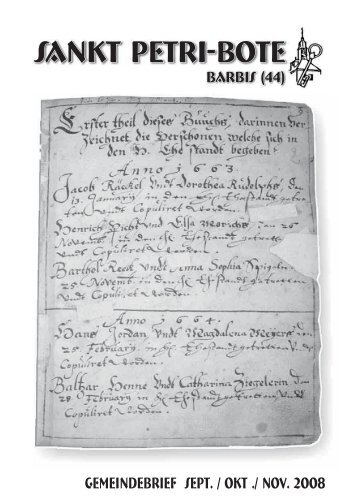 SANKT PETRI-BOTE
BARBIS (44)
Erster theil dieses Buuchs darinnen Ver
Zeichnet die Perschonen welche sich in
den H. Ehe standt begeben
Anno 1663.
Jacob Räckel Undt Dorothea Rudolphs, den
13. January in den
Undt Copuliret Worden.
Henrich Undt Elsa den 26
Novemb. in den Ehestandt getretten
Undt Copuliret Worden
Barthol Undt Anna Sophia
25 Novemb. in den Ehestandt getretten
Undt Copuliret Worden
Anno 1664.
Hans Jordan Undt Magdalena den
25 February in Ehestandt getretten
Copuliret Worden.
Baltzar Henne Undt Catharina Ziegelerin den
28 February in Ehestandt getretten Undt
Copuliret Worden.
GEMEINDEBRIEF SEPT. / OKT ./ NOV. 2008